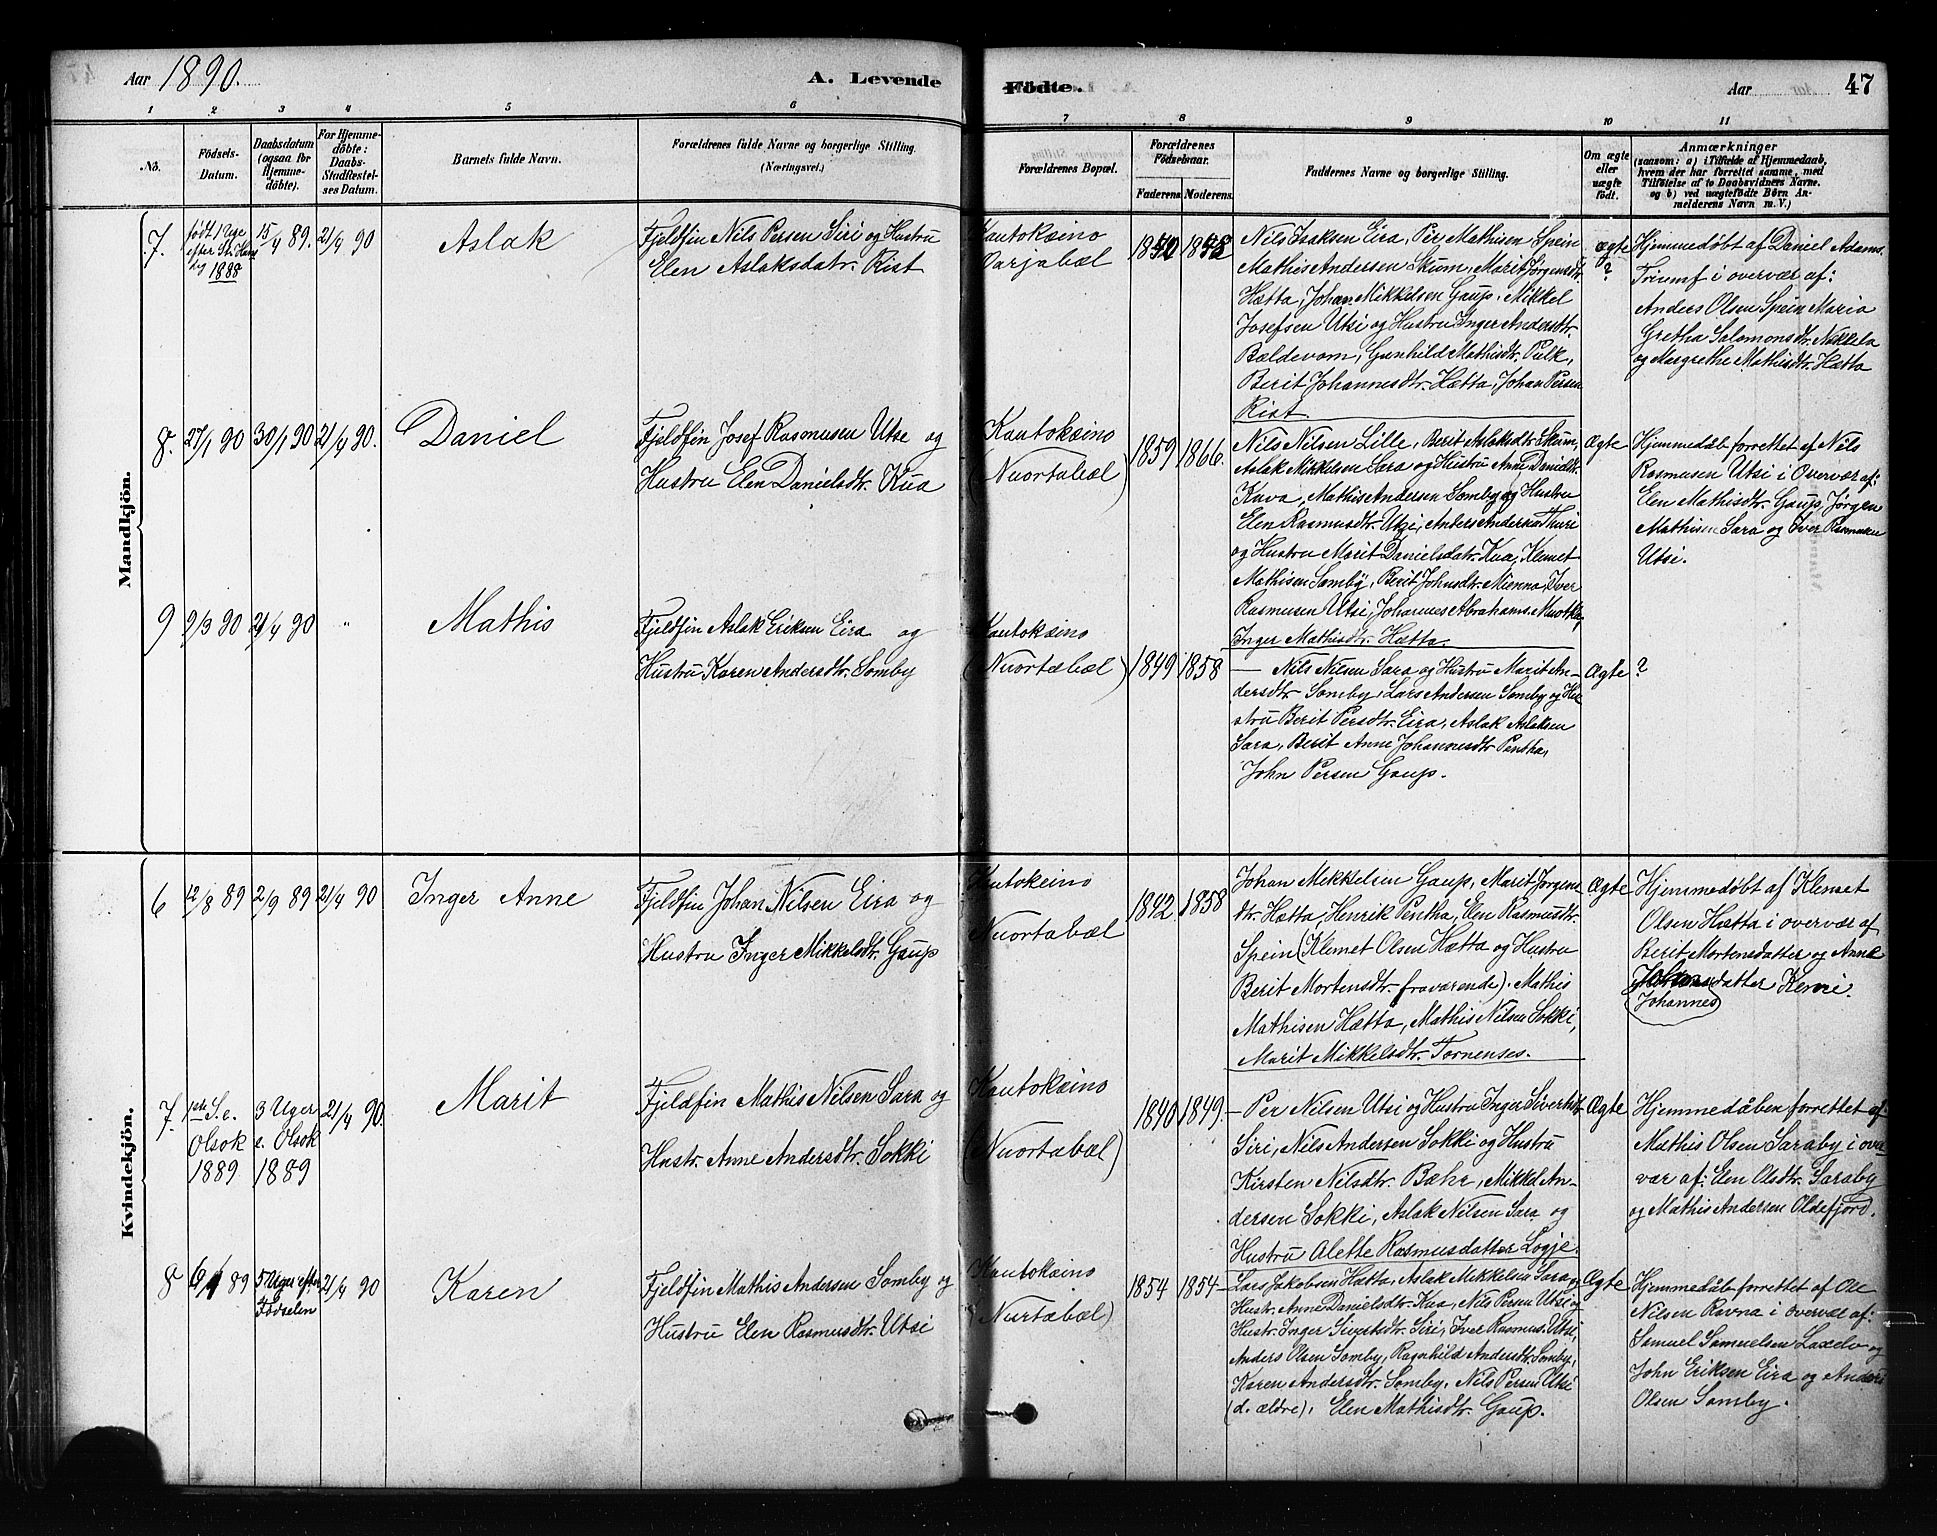 Aar 1890.
A. Levende
Födte.
Aar
47
1 2 3 4 5 6 7 8 9 10 11
No.
Födsels-
Datum.
Daabsdatum
(ogsaa for
Hjemme-
döbte).
For Hjemme-
döbte:
Daabs-
Stadfæstel-
ses Datum.
Barnets fulde Navn.
Forældrenes fulde Navne og borgerlige Stilling.
(Næringsvei.)
Forældrenes Bopæl.
Forældrenes
Födselsaar.
Faderens
Moderens.
Faddernes Navne og borgerlige Stilling.
Om ægte
eller
uægte
födt.
Anmærkninger
(saasom: a) i Tilfælde af Hjemmedaab,
hvem der har forrettet samme, med
Tilföielse af to Daabsvidners Navne,
og b) ved uægtefödte Börn An-
melderens Navn m. V.)
Mandkjön.
7.
født 1 Uge
efter St. Hans
dg
1888
15/4 89.
21/4 90
Aslak
Fjeldfin Nils Persen Siri og Hustru
Elen Aslaksdatr. Rist
Kautokeino
1858
Nils Isaksen Eira, Per Mathisen Spein
Mathis Andersen Skum, Marit Jørgensdtr.
Hætta, Johan Mikkelsen Gaup, Mikkel
Josefsen Utsi og Hustru Inger Andersdtr.
Bældevom, Gunhild Mathisdtr. Pulk,
Berit Johannesdtr. Hætta, Johan Persen
Rist.
ægte
?
Hjemmedøbt af Daniel Adams.
Triumf i overvær af:
Anders Olsen Spein Maria
Gretha Salomonsdtr. Nikkela
og Margrethe Mathisdtr. Hætta
8.
27/1 90
30/1 90
21/4 90.
Daniel
Fjeldfin Josef Rasmusen Utse og
Hustru Elen Danielsdtr. Kua
Kautokeino
(Nuortabæl)
1859
1866.
Nils Nilsen Lille, Berit Aslaksdtr. Skum,
Aslak Mikkelsen Sara og Hustru Anne Danielsdtr.
Kava, Mathis Andersen Somby og Hustru
Elen Rasmusdtr. Utzi, Anders Andersen Thuri
og Hustru Marit Danielsdatr. Kua, Klemet
Mathisen Somby, Berit Johnsdtr. Mienna, Iver
Rasmusen Utsi, Johannes Abrahams. Muotka,
Inger Mathisdtr. Hætta.
Ægte
Hjemmedåb forrettet af Nils
Rasmusen Utsi i Overvær af:
Elen Mathisdtr. Gaup, Jørgen
Mathisen Sara og Iver Rasmusen
Utsi.
9
9/3 90
21/4 90
"
Mathis
Fjeldfin Aslak Eriksen Eira og
Hustru Karen Andersdtr. Somby
Kautokeino
(Nuortabæl)
1849
1858
— Nils Nilsen Sara og Hustru Marit An-
dersdtr. Somby, Lars Andersen Somby og Hu-
stru Berit Persdtr. Eira, Aslak Aslaksen
Sara, Berit Anne Johannesdtr Pentha,
John Persen Gaup.
Ægte
?
Kvindekjön.
6
12/8 89
2/9 89
21/4 90
Inger Anne
Fjeldfin Johan Nilsen Eira og
Hustru Inger Mikkelsdtr. Gaup
Kautokeino
Nuortabæl
1842
1858
Johan Mikkelsen Gaup, Marit Jørgens
dtr. Hætta, Henrik Pentha, Elen Rasmusdtr.
Spein (Klemet Olsen Hætta og Hustru
Berit Mortensdtr. fraværende). Mathis
Mathisen Hætta, Mathis Nilsen Sokki,
Marit Mikkelsdtr. Tornenses.
Ægte
Hjemmedøbt af Klemet
Olsen Hætta i overvær af
Berit Mortensdatter og Anne
datter Kemi.
(Johannes)
7.
1ste S. e.
Olsok
1889
3 Uger
e. Olsok
1889
21/4 90.
Marit
Fjeldfin Mathis Nilsen Sara og
Hustr. Anne Andersdtr. Sokki
Kautokeino
(Nuortabæl)
1840
1849.
— Per Nilsen Utsi og Hustru Inger Siversdtr
Siri, Nils Andersen Sokki og Hustru
Kirsten Nilsdtr. Bæhr, Mikkel An-
dersen Sokki, Aslak Nilsen Sara og
Hustru Alette Rasmusdatter Logje.
Ægte
Hjemmedåben forrettet af:
Mathis Olsen Saraby i over-
vær af: Elen Olsdtr. Saraby
og Mathis Andersen Oldefjord.
8
89
5 Uger efter
Fødselen
21/4 90
Karen
Fjeldfin Mathis Andersen Somby og
Hustru Elen Rasmusdtr. Utsi
Kautokeino
(Nurtabæl)
1854
1854
Lars Jakobsen Hætta, Aslak Mikkelsen Sara og
Hustr. Anne Danielsdtr. Kua, Nils Persen Utsi og
Hustr. Inger Sivertsdtr. Siri, Iver Rasmus. Utsi,
Anders Olsen Somby, Ragnhild Andersdtr. Somby,
Karen Andersdtr. Somby, Nils Persen Utsi
(d. ældre), Elen Mathisdtr. Gaup.
Ægte
Hjemmedåb forrettet af Ole
Nilsen Ravna i overvær af:
Samuel Samuelsen og
John Eriksen Eira og Anders
Olsen Somby.